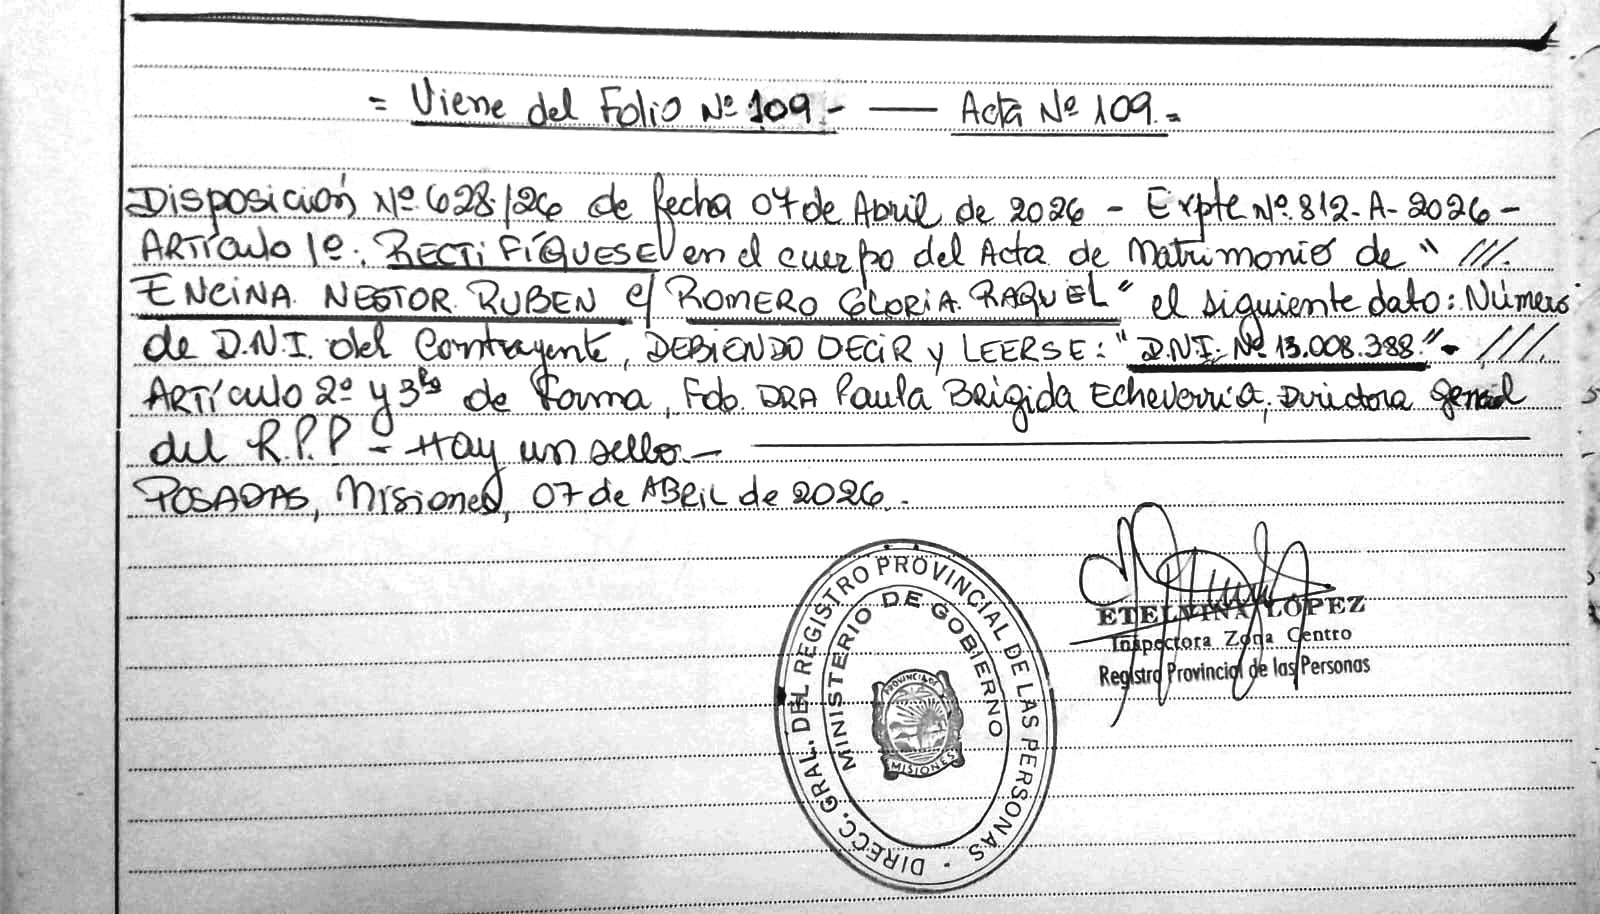 = Viene del Folio Nº 109.- —— Acta Nº 109.=
Disposición Nº 628/26 de fecha 07 de Abril de 2026 - Expte Nº 812-A-2026-
ARTÍCULO 1º: RECTIFÍQUESE en el cuerpo del Acta de Matrimonio de " ///.
ENCINA NESTOR RUBEN c/ ROMERO GLORIA RAQUEL" el siguiente dato: Número
de D.N.I. del Contrayente, DEBIENDO DECIR y LEERSE: "D.N.I. Nº 13.008.388."- ///.
ARTÍCULO 2º y 3ro de Forma, Fdo. DRA Paula Brigida Echeverria, Directora General
del R.P.P - Hay un sello.-
POSADAS, Misiones, 07 de ABRIL de 2026.-
DIRECC. GRAL. DEL REGISTRO PROVINCIAL DE LAS PERSONAS -
MINISTERIO DE GOBIERNO
PROVINCIA DE
MISIONES
ETELVINA LÓPEZ
Inspectora Zona Centro
Registro Provincial de las Personas